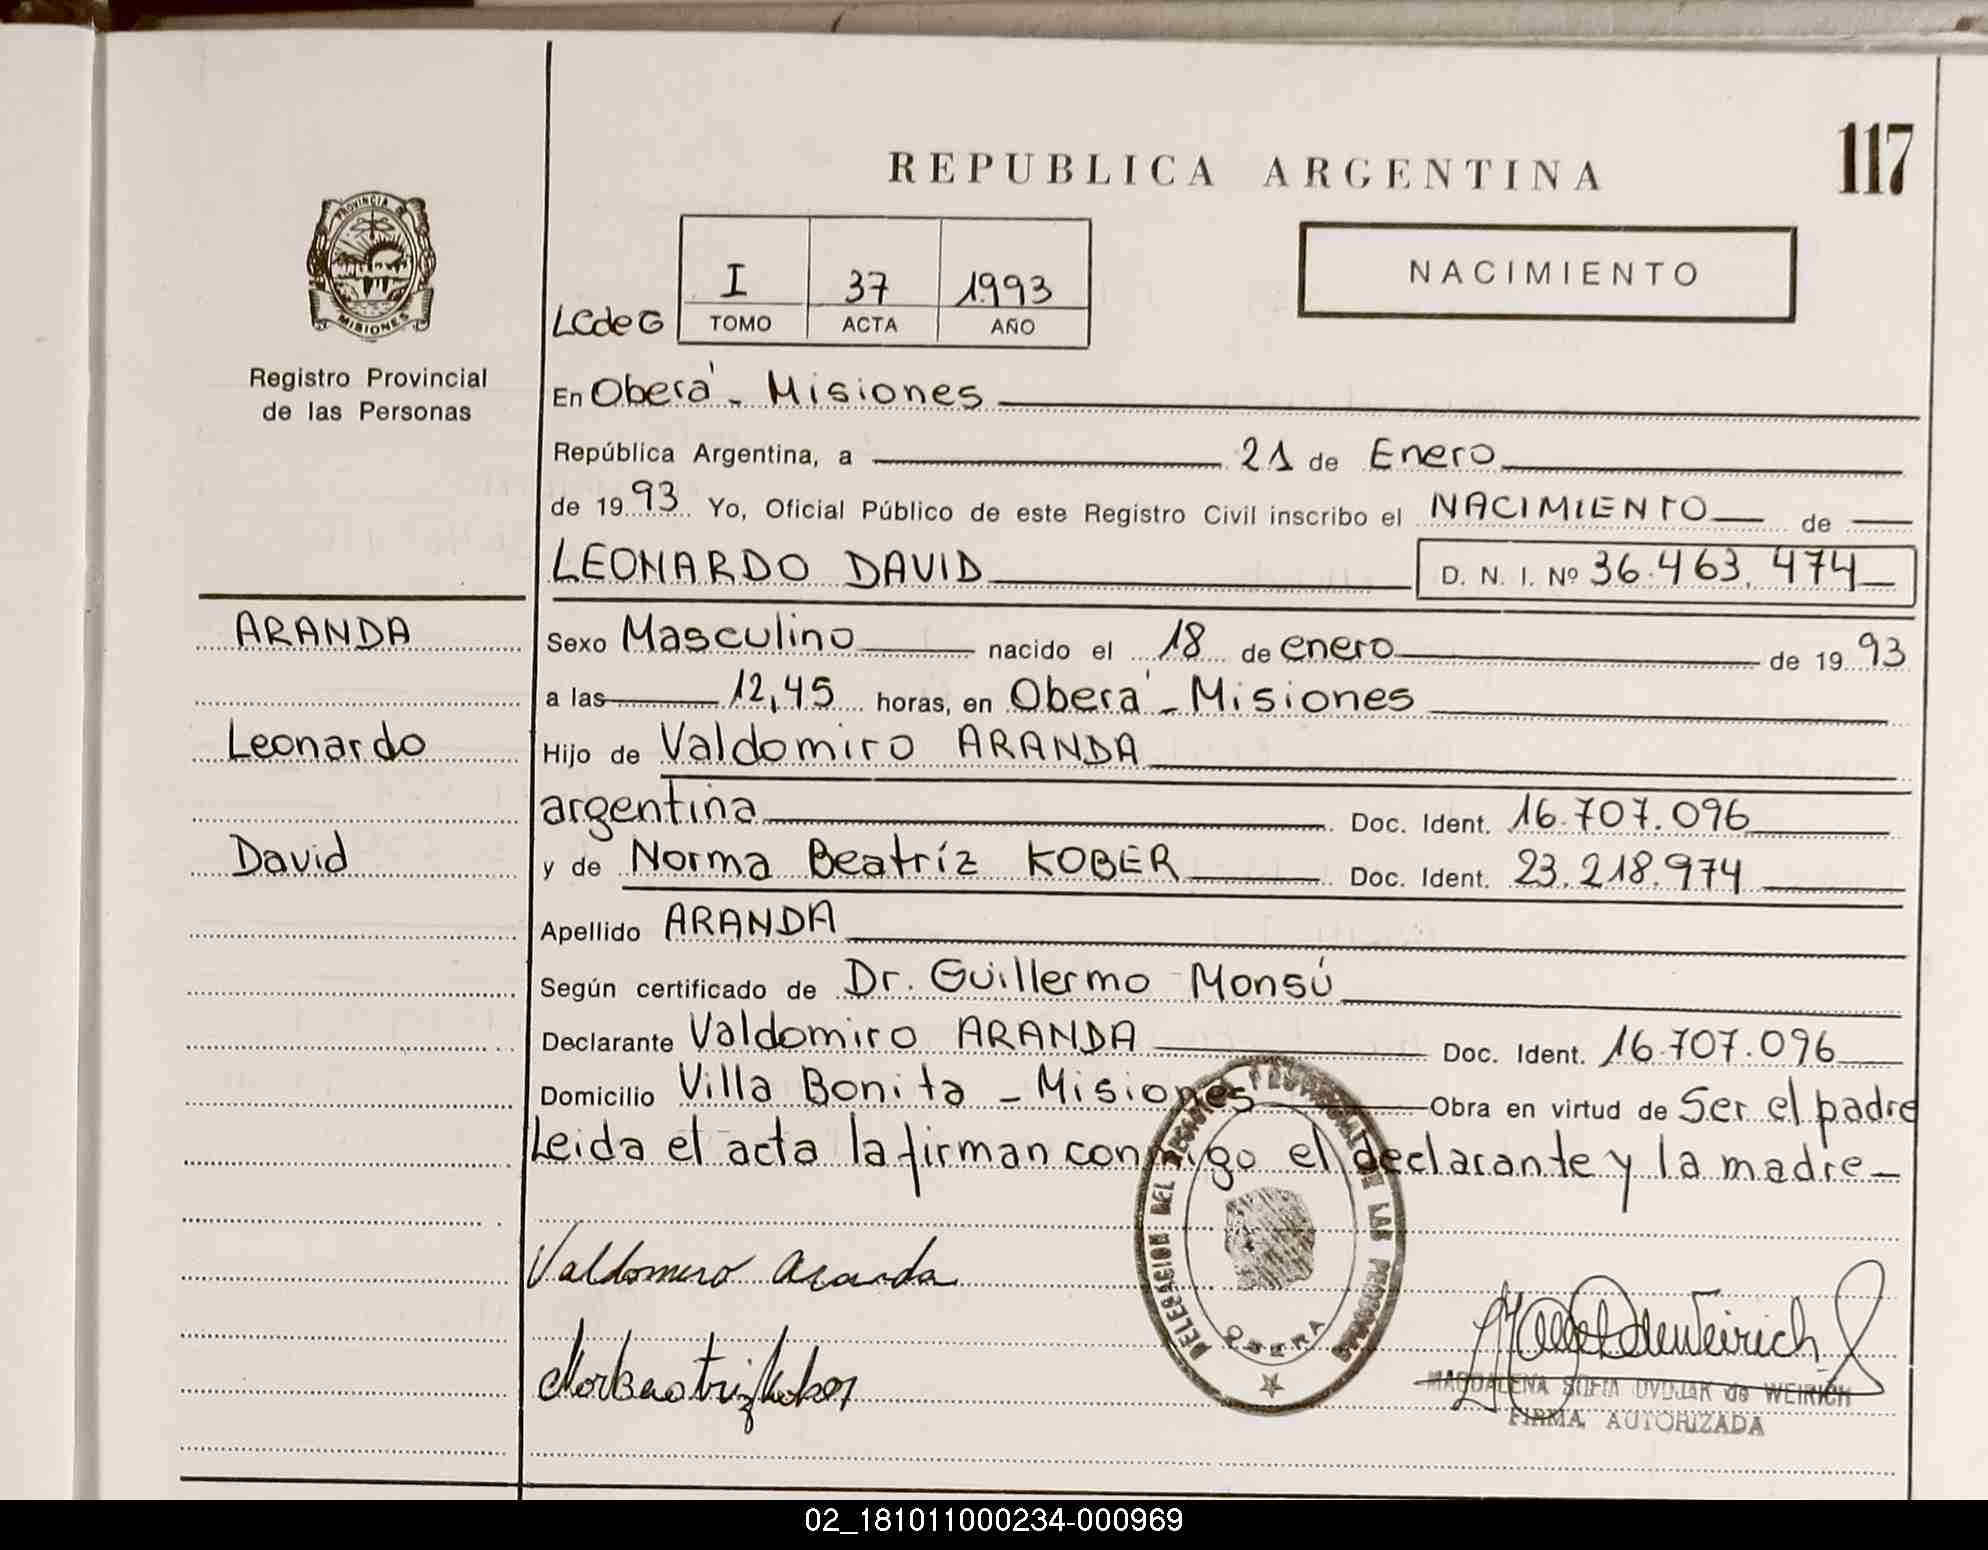 117
REPUBLICA ARGENTINA
PROVINCIA DE
MISIONES
Registro Provincial
de las Personas
NACIMIENTO
LCdeG
I 37 1993
TOMO ACTA AÑO
En Oberá - Misiones
República Argentina, a 21 de Enero
de 1993 Yo, Oficial Público de este Registro Civil inscribo el NACIMIENTO de
LEONARDO DAVID D. N. I. Nº 36.463.474
ARANDA
Leonardo
David
Sexo Masculino nacido el 18 de enero de 1993
a las 12,45 horas, en Oberá - Misiones
Hijo de Valdomiro ARANDA
argentina Doc. Ident. 16.707.096
y de Norma Beatríz KOBER Doc. Ident. 23.218.974
Apellido ARANDA
Según certificado de Dr. Guillermo Monsú
Declarante Valdomiro ARANDA Doc. Ident. 16.707.096
Domicilio Villa Bonita - Misiones Obra en virtud de Ser el padre
Leida el acta la firman conmigo el declarante y la madre
DELEGACION DEL REGISTRO PROVINCIAL DE LAS PERSONAS
OBERA
Valdomiro Aranda
MAGDALENA SOFIA DVDUAR de WEIRICH
FIRMA AUTORIZADA
02_181011000234-000969